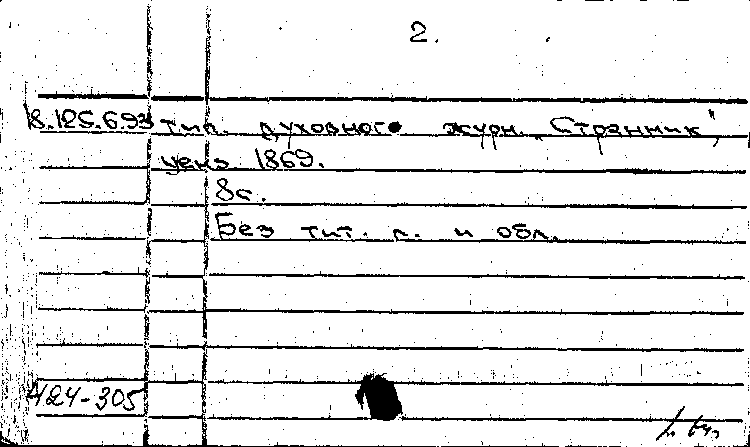 2.
18.125.693 тип. духовного журн. „Странник",
ценз 1869.
8с.
Без тит. л. и обл.
А24-305